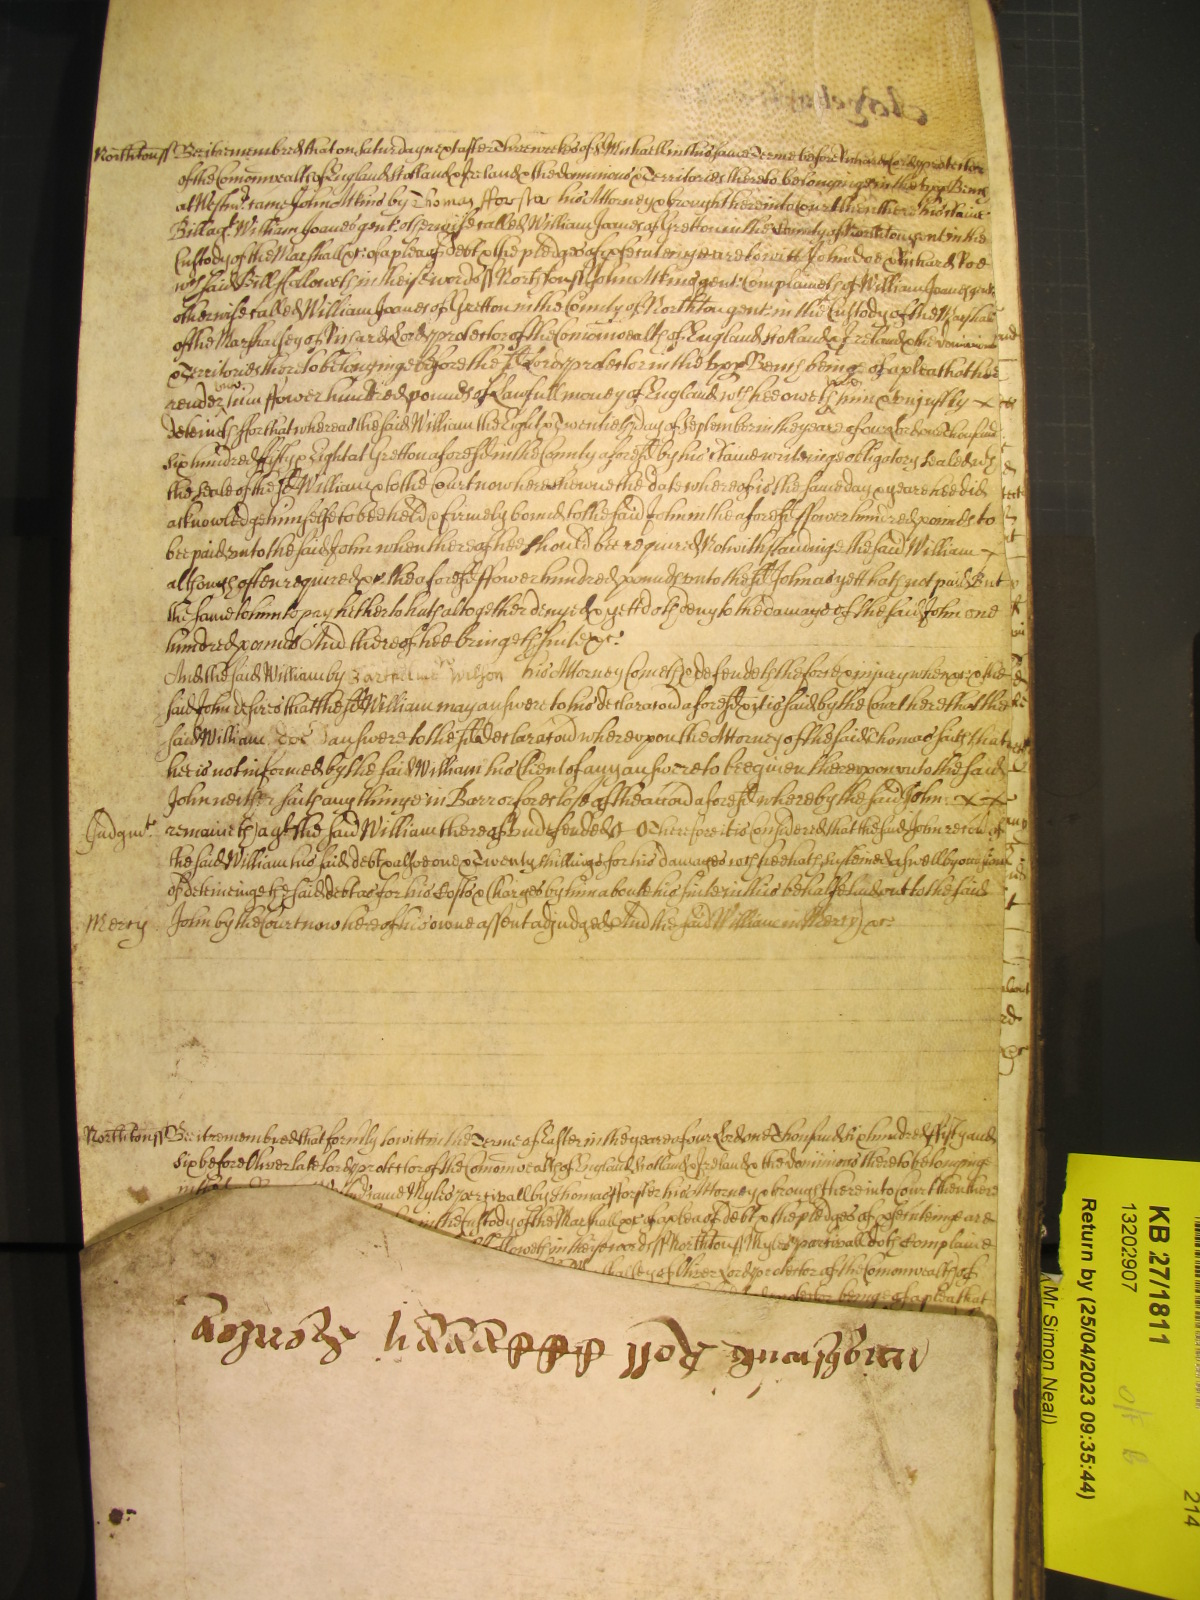 Northtonss Bee it remembred that on Saturday next after Three weekes of St Michaell in this same Terme before Richard Lord protector
of the Comonwealth of England Scotland & Ireland & the dominions & Territories thereto belonginge in the upp Bench
at Westmr came John Atkins by Thomas fforster his Attorney & brought here into Court then there his
Bill agt William Joanes gent otherwise called William Joanes of Gretton in the County of Northton gent in the
Custody of the Marshall &c of a plea of debt & the pledges of psecutinge are to witt John Doe & Richard Roe
wch said Bill followeth in theise words ss Northtonss John Atkins gent Complaineth of William Joanes gent
otherwise called William Joanes of Gretton in the County of Northton gent in the Custody of the Marshall
of the Marshalsey of Richard Lord protector of the Comonwealth of England Scotland & Ireland & the dominions
& Territories thereto belonginge before the sd Lord protector in the upp Bench being of a plea that hee
render unto him ffower hundred pounds of lawfull money of England wch hee oweth him & unjustly
deteineth ffor that whereas the said William the Eight & Twentieth day of September in the yeare of our Lord one Thousand
six hundred ffifty & Eight at Gretton aforesd in the County aforesd by his Certaine writeinge obligatory sealed wth
the seale of the sd William & to the Court now here showne the date whereof is the same day & yeare hee did
acknowledge himselfe to bee held & firmely bound to the said John in the aforesd ffower hundred pounds to
bee paid unto the said John when thereof hee should bee required Notwithstandinge the said William
although often required &c the aforesd ffower hundred pounds unto the sd John as yett hath not paid But
the same to him to pay hetherto hath altogether denyed & yett doth deny to the damage of the said John one
hundred pounds And thereof hee bringeth suite &c
And the said William by Wilson his Attorney Cometh & defendeth the force & injury when &c & the
said John desires that the sd William may answere to his declaracon aforesd & it is said by the Court here that the
said William doe answere to the sd declaracon whereupon the Attorney of the said Thomas saith that
he is not informed by the said William his Client of any answere to bee given thereupon unto the said
John neither saith any thinge in Barr or foreclose of the accon aforesd whereby the said John
Judgmt remaineth agt the said William thereof undefended Therefore it is Considered that the said John recover agt
the said William his said debt & alsoe one & Twenty shillings for his damages wch hee hath susteined aswell by occasion
of deteininge the said debt as for his Costs & Charges by him about his suite in this behalfe laid out to the said
Mercy John by the Court now here of his owne assent adjudged And the said William in Mercy &c
Northtonss Bee it remembred that formly to witt in the Terme of Easter in the yeare of our Lord one Thousand six hundred ffifty and
six before Oliver late Lord protector of the Comonwealth of England Scotland & Ireland & the dominions thereto belonginge
came Myles percivall by Thomas fforster his Attorney & brought here into Court then there
in the Custody of the Marshall &c of a plea of debt & the pledges of psecutinge are
followeth in theise words ss Northtonss Myles percivall doth Complaine
of Oliver Lord protector of the Comonwealth of
protector beinge of a plea that
KB 27/1811
13202907
Return by (25/04/2023 09:35:44)
Mr Simon Neal)
214